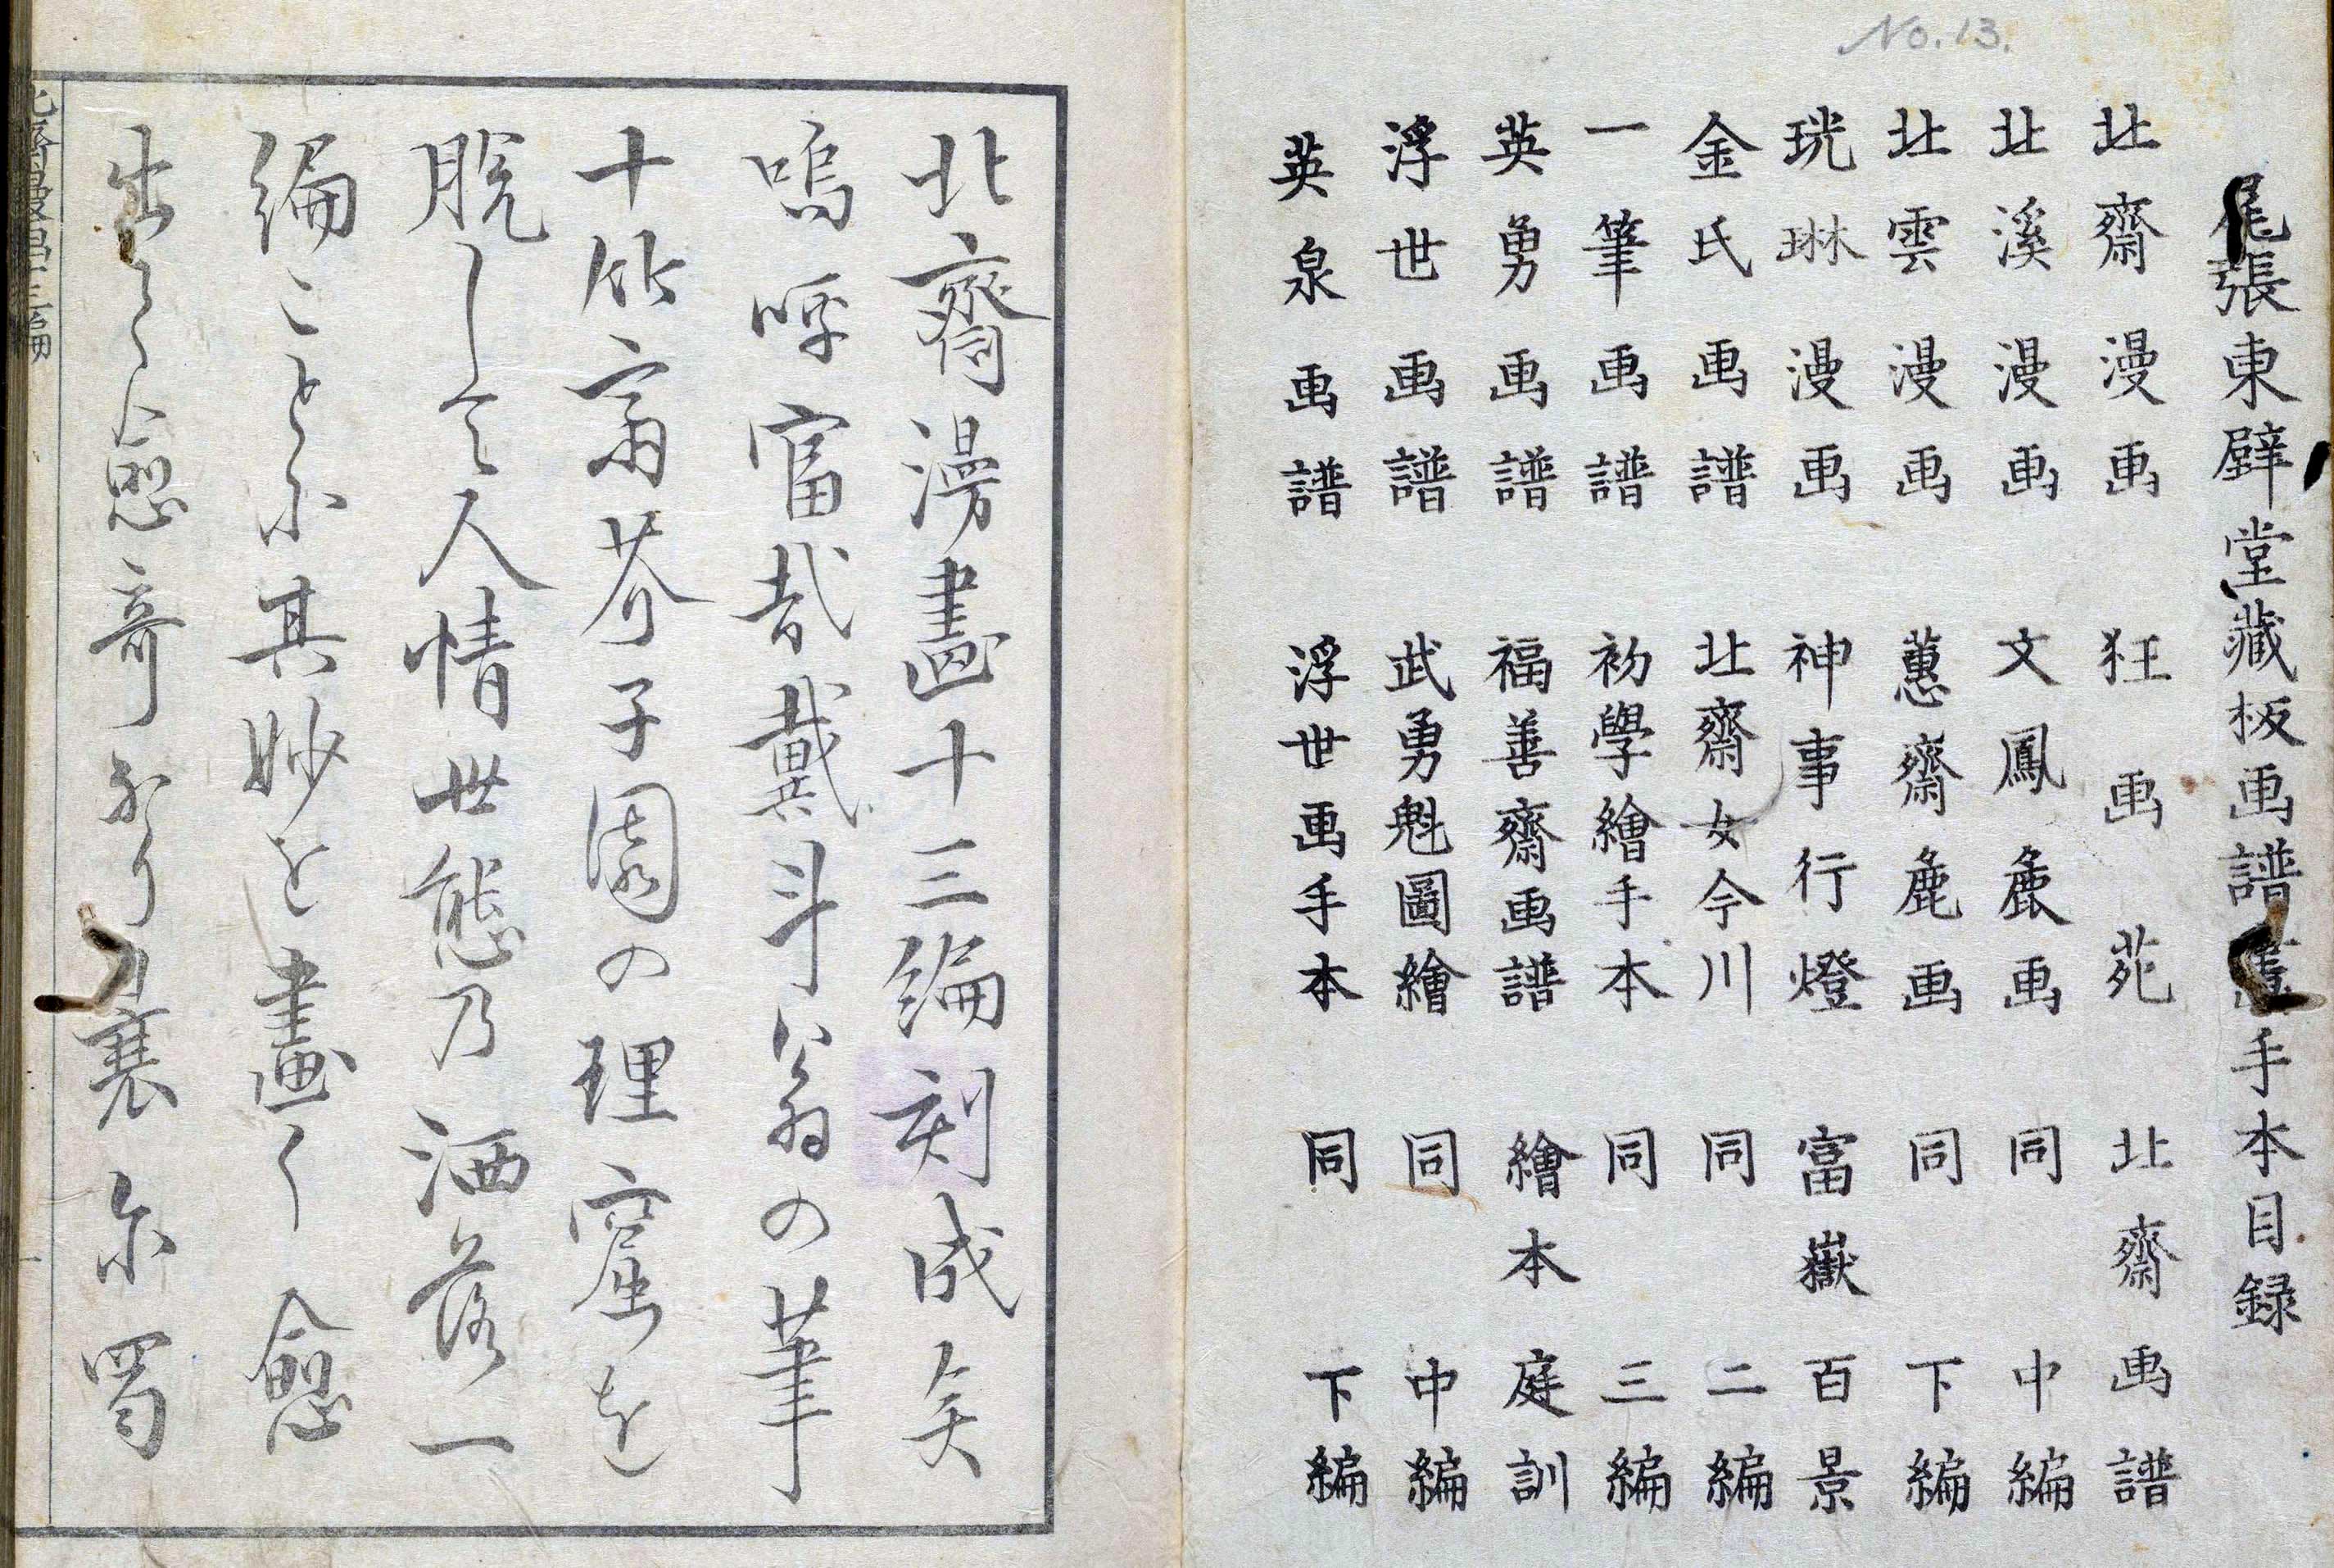 No. 13.
尾張東壁堂藏板画譜畫手本目録
北齋漫画 狂画苑 北齋画譜
北溪漫画 文鳳麁画 同 中編
北雲漫画 蕙齋麁画 同 下編
珖琳漫画 神事行燈 富嶽百景
金氏画譜 北齋女今川 同 二編
一筆画譜 初學繪手本 同 三編
英勇画譜 福善齋画譜 繪本庭訓
浮世画譜 武勇魁圖繪 同 中編
英泉画譜 浮世画手本 同 下編
北齋漫畫十三編刻成矣
嗚呼富哉戴斗翁の筆
十竹齋芥子園の理窟を
脱して人情世態乃洒落一
編ことに其妙を畫く愈
出て愈奇なり裏尓蜀